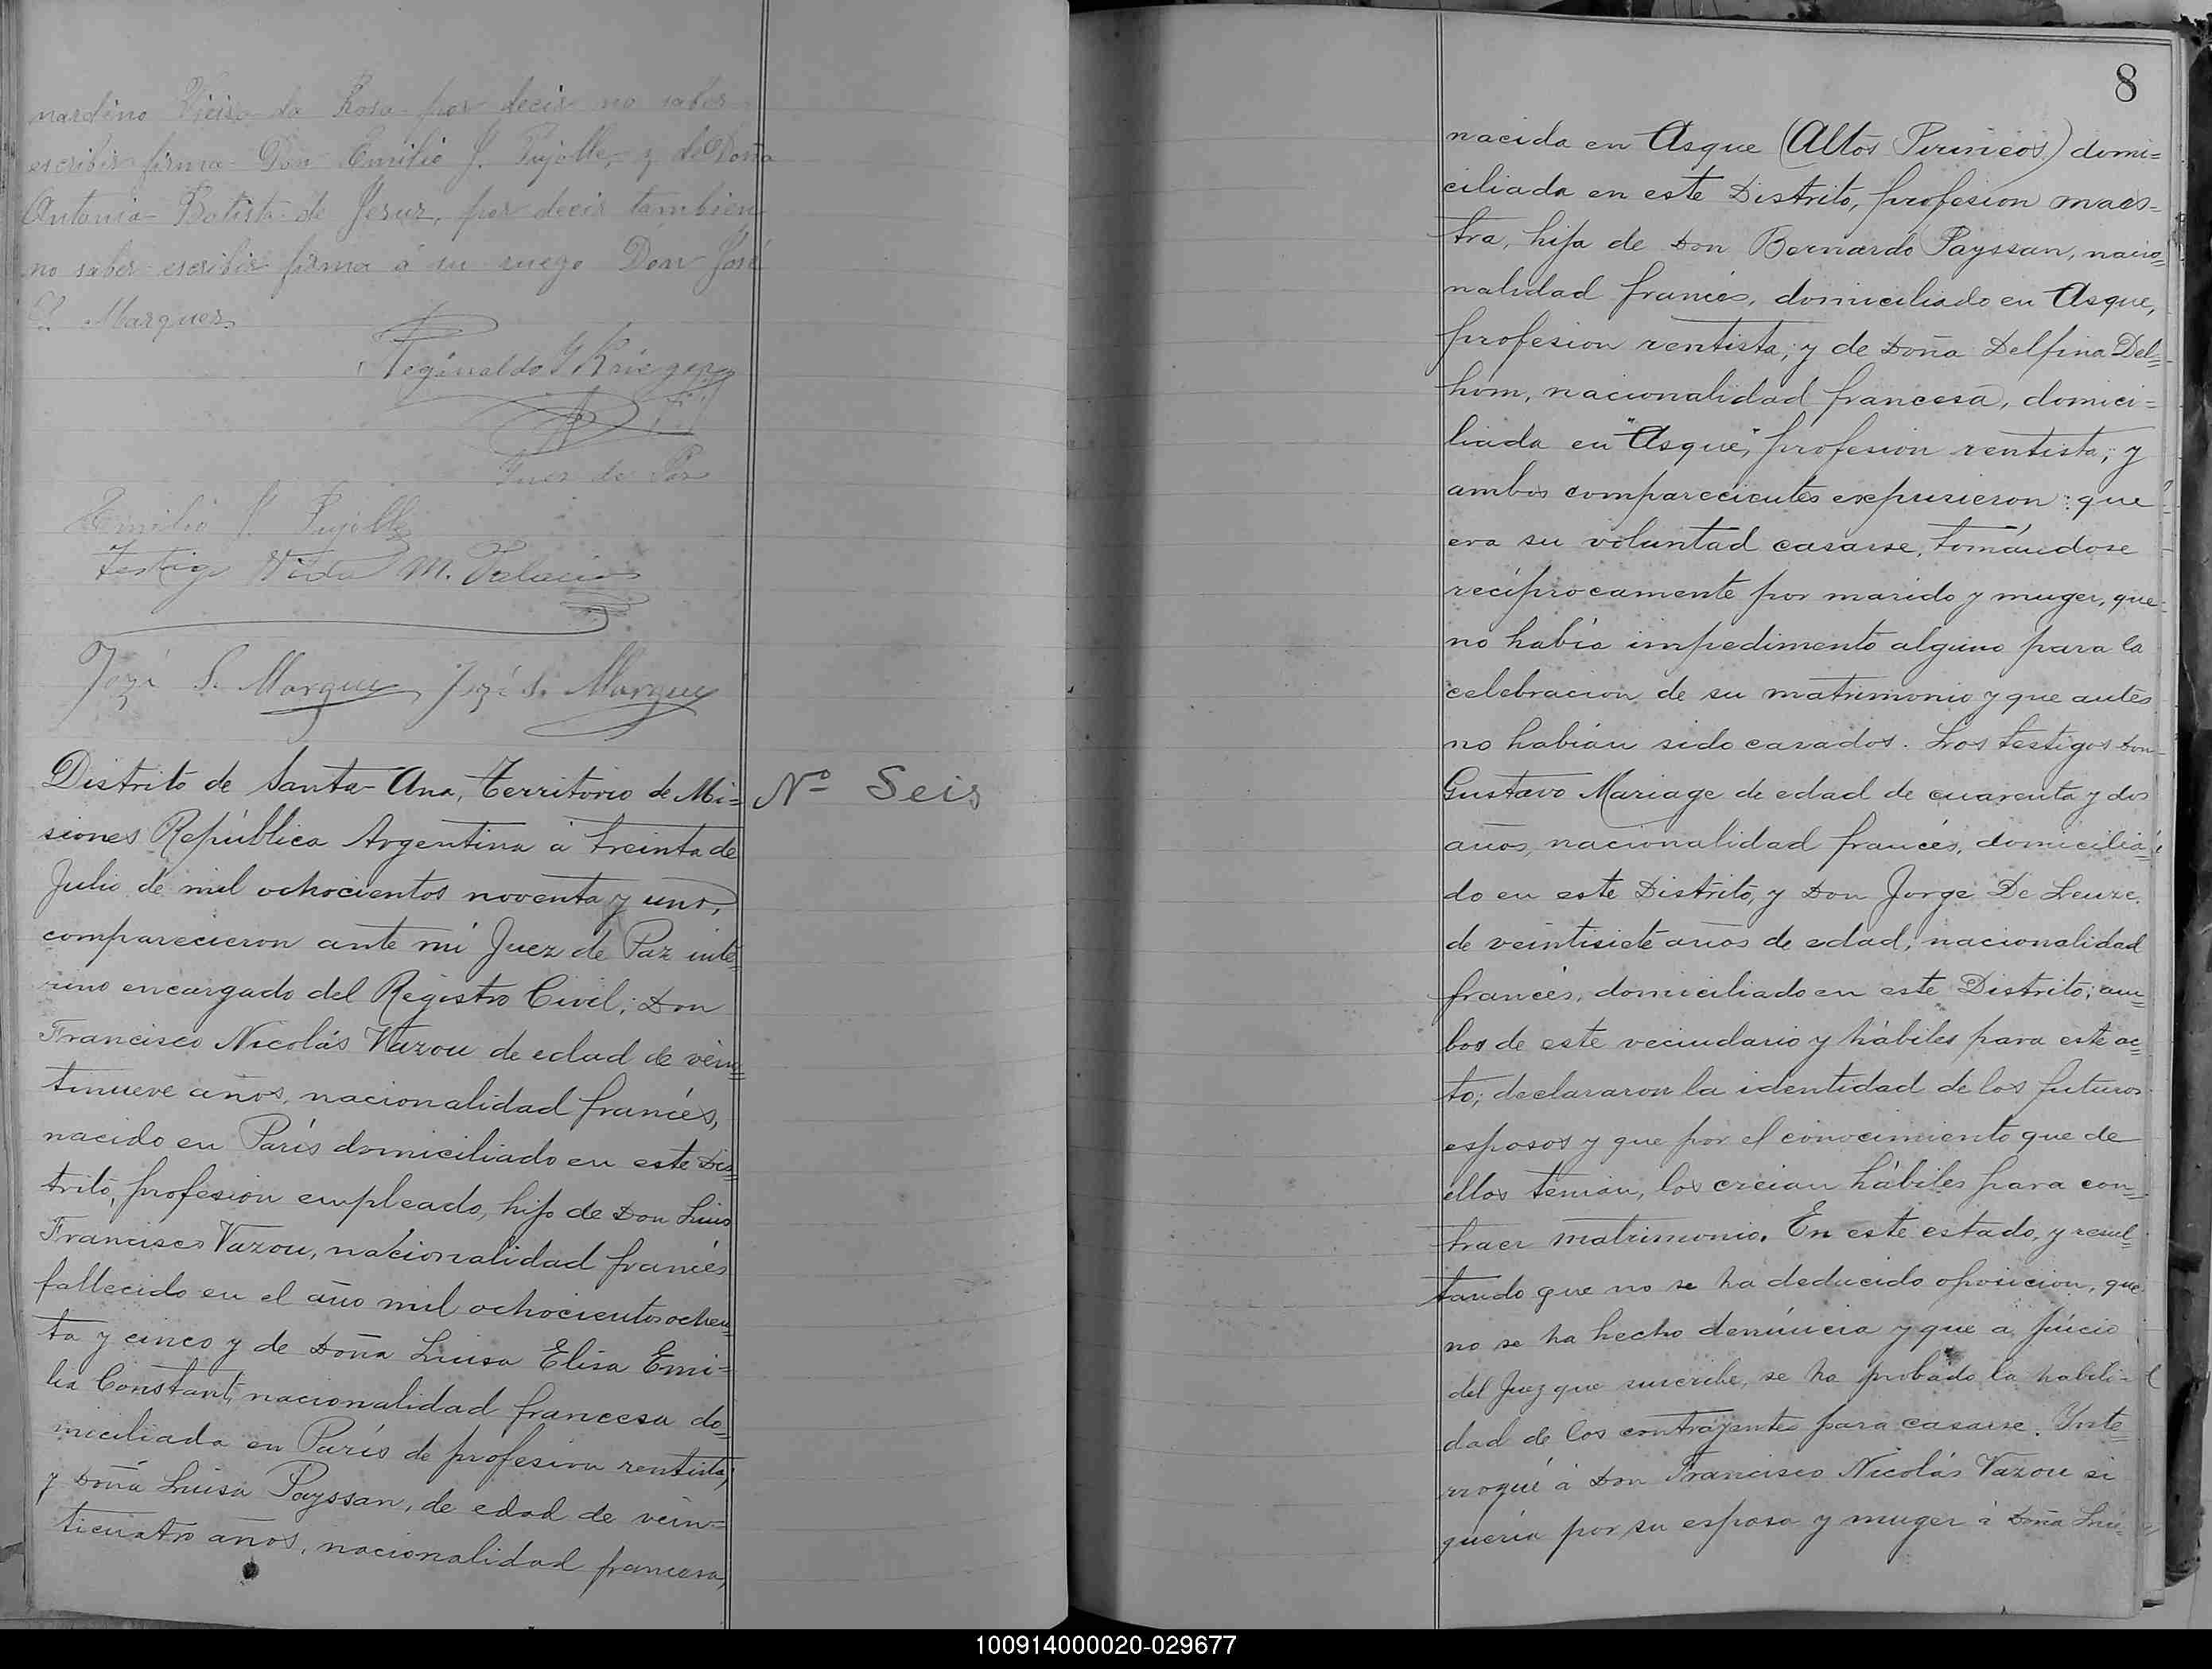 nardino Vieira da Rosa por decir no saber
escribir firma Don Emilio S. Pujolle, y de Doña
Antonia Batista de Jesuz, por decir tambien
no saber escribir firma á su ruego Don José
S. Marques
Reginaldo G Krieger
Juez de Paz
Emilio S. Pujolle
Testigo Vidal M. Palacio
José S. Marques José S. Marques
Distrito de Santa Ana, Territorio de Mi=
siones República Argentina á treinta de
Julio de mil ochocientos noventa y uno,
comparecieron ante mi Juez de Paz inte=
rino encargado del Registro Civil; Don
Francisco Nicolás Vazou de edad de vein=
tinueve años, nacionalidad francés,
nacido en París domiciliado en este Dis=
trito, profesion empleado, hijo de Don Luis
Francisco Vazou, nacionalidad francés
fallecido en el año mil ochocientos ochen=
ta y cinco y de Doña Luisa Elisa Emi=
lia Constant, nacionalidad francesa do=
miciliada en París de profesion rentista;
y Doña Luisa Payssan, de edad de vein=
ticuatro años, nacionalidad francesa,
Nº Seis
8
nacida en Asque (Altos Pirineos) domi=
ciliada en este Distrito, profesion maes=
tra, hija de Don Bernardo Payssan, nacio=
nalidad francés, domiciliado en Asque,
profesion rentista; y de Doña Delfina Del=
hom, nacionalidad francesa, domici=
liada en "Asque", profesion rentista; y
ambos comparecientes expusieron: que
era su voluntad casarse, tomándose
recíprocamente por marido y muger, que
no había impedimento alguno para la
celebracion de su matrimonio y que antes
no habían sido casados. Los testigos Don
Gustavo Mariage de edad de cuarenta y dos
años, nacionalidad francés, domicilia=
do en este Distrito, y Don Jorge De Leuze,
de veintisiete años de edad, nacionalidad
francés, domiciliado en este Distrito; am=
bos de este vecindario y hábiles para este ac=
to; declararon la identidad de los futuros
esposos y que por el conocimiento que de
ellos tenian, los creian hábiles para con=
traer matrimonio. En este estado, y resul=
tando que no se ha deducido oposicion, que
no se ha hecho denúncia y que a juicio
del Juez que suscribe, se ha probado la habili=
dad de los contrayentes para casarse. Ynte=
rrogué á Don Francisco Nicolás Vazou si
quería por su esposa y muger á Doña Lui=
100914000020-029677